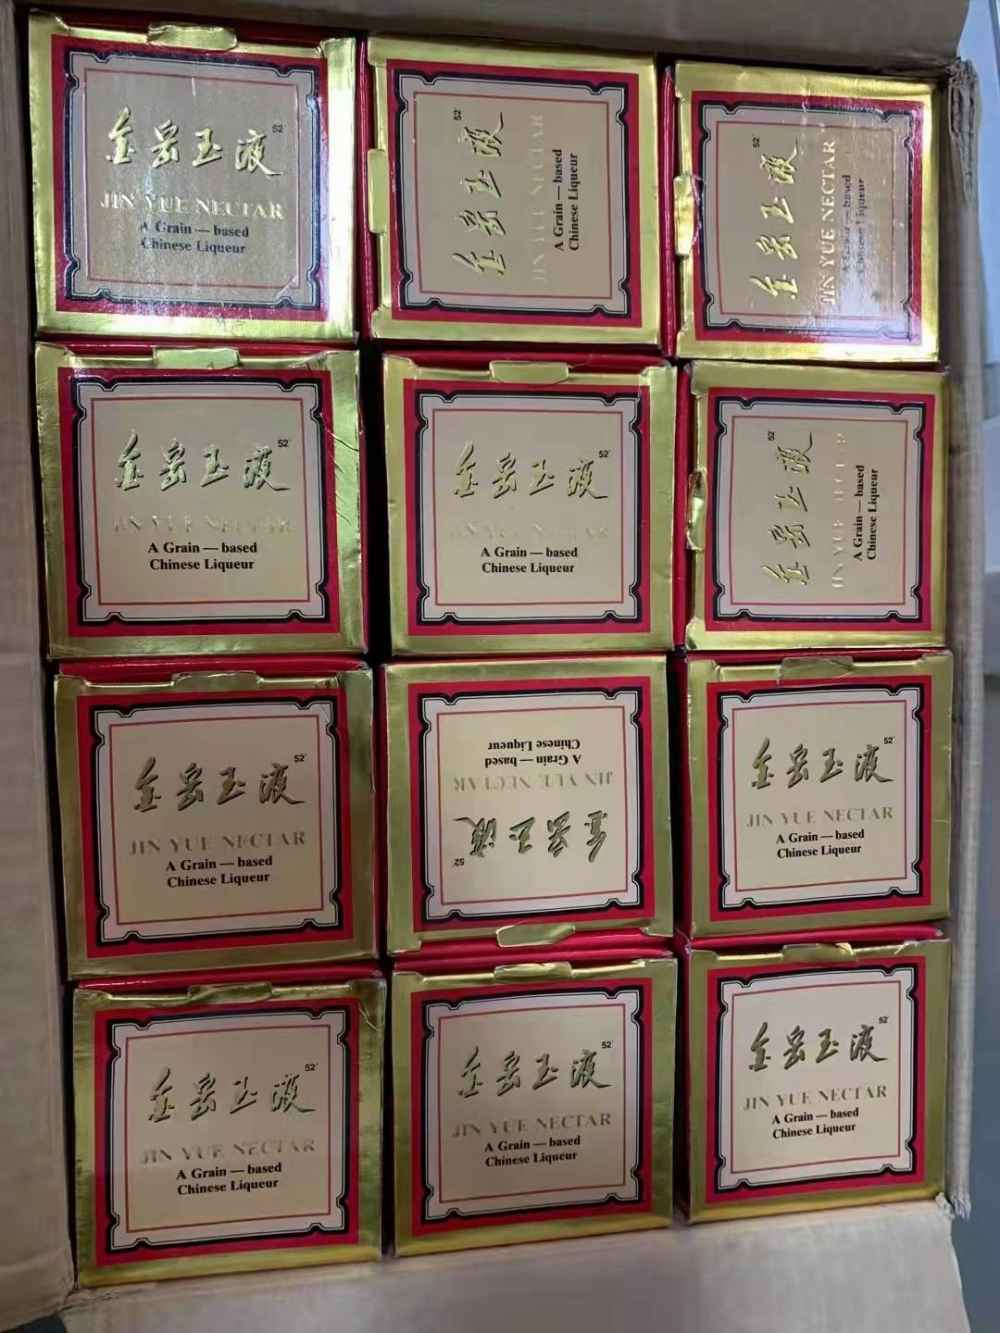 金岳玉液 52°
JIN YUE NECTAR
A Grain — based
Chinese Liqueur
金岳玉液 52°
JIN YUE NECTAR
A Grain — based
Chinese Liqueur
金岳玉液 52°
JIN YUE NECTAR
A Grain — based
Chinese Liqueur
金岳玉液 52°
JIN YUE NECTAR
A Grain — based
Chinese Liqueur
金岳玉液 52°
JIN YUE NECTAR
A Grain — based
Chinese Liqueur
金岳玉液 52°
JIN YUE NECTAR
A Grain — based
Chinese Liqueur
金岳玉液 52°
JIN YUE NECTAR
A Grain — based
Chinese Liqueur
金岳玉液 52°
JIN YUE NECTAR
A Grain — based
Chinese Liqueur
金岳玉液 52°
JIN YUE NECTAR
A Grain — based
Chinese Liqueur
金岳玉液 52°
JIN YUE NECTAR
A Grain — based
Chinese Liqueur
金岳玉液 52°
JIN YUE NECTAR
A Grain — based
Chinese Liqueur
金岳玉液 52°
JIN YUE NECTAR
A Grain — based
Chinese Liqueur